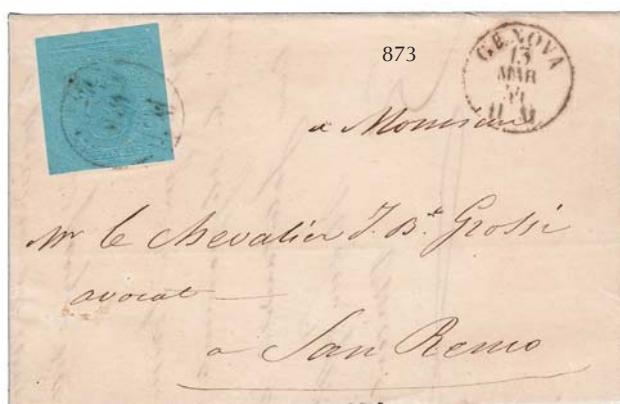 873
GENOVA
13
MAR
54
a Monsieur
Mr le Chevalier J. Bte Grossi
avocat
a San Remo